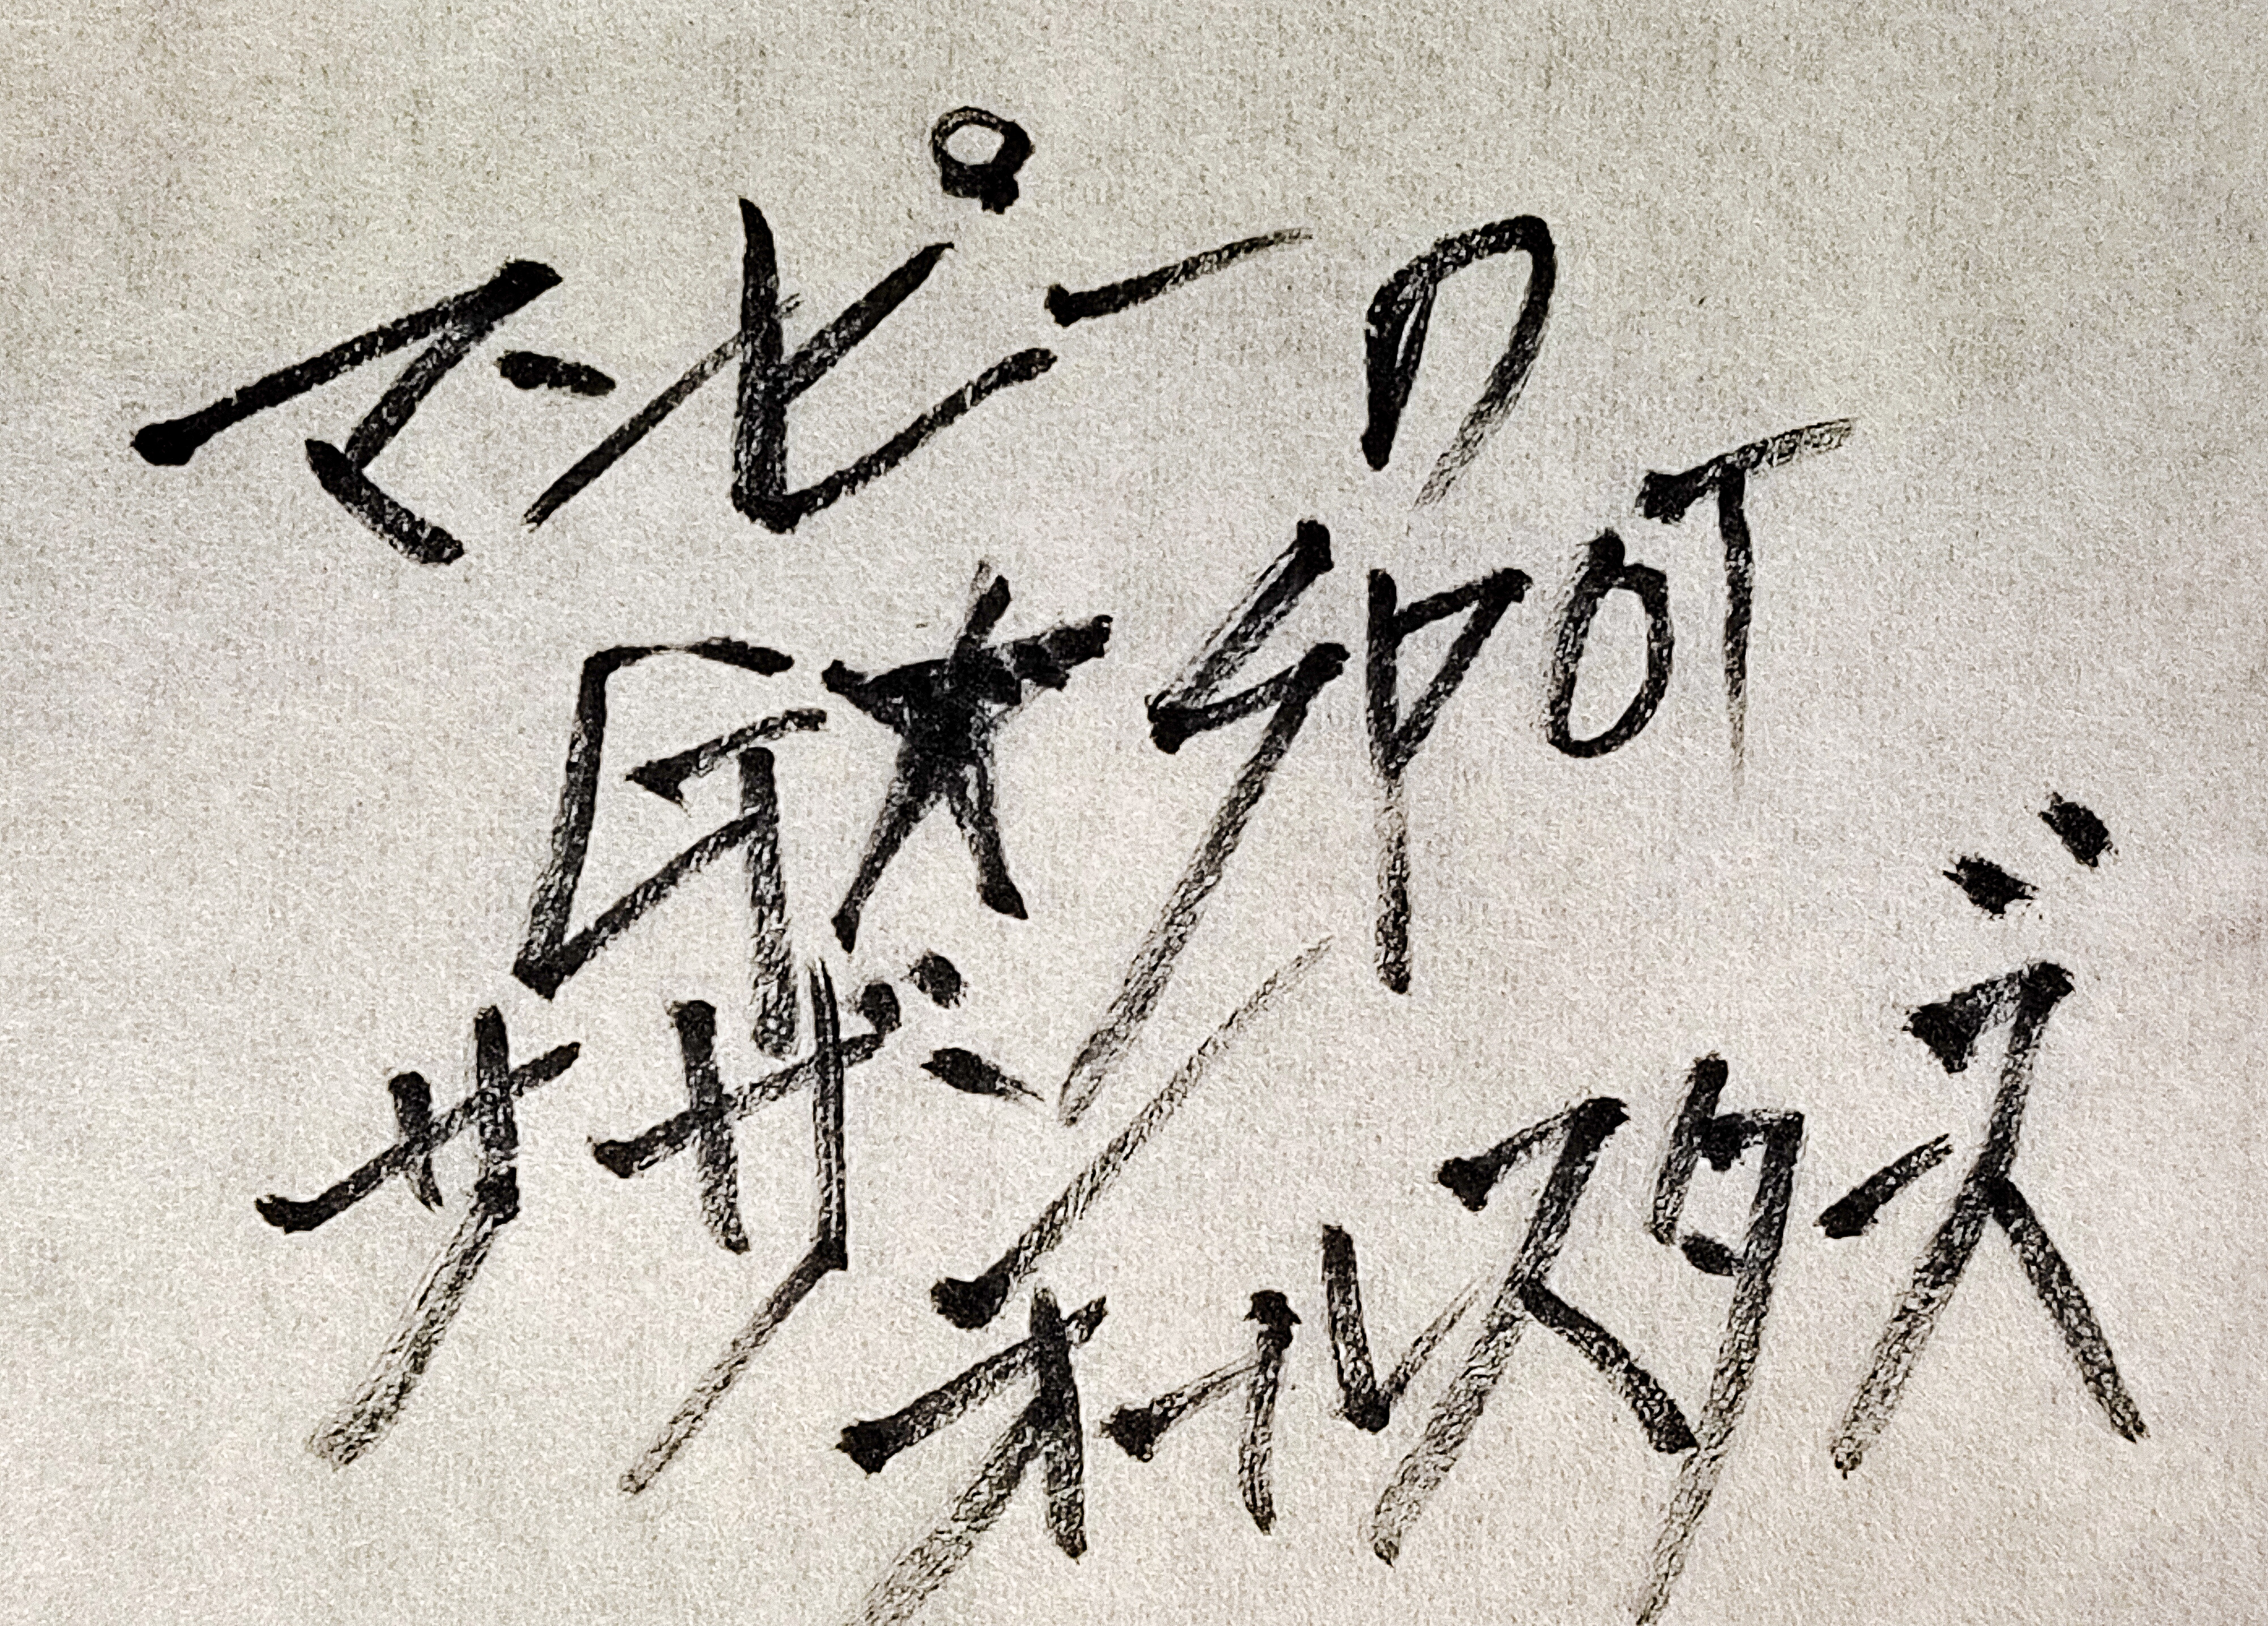 マンピーの
G★SPOT
サザンオールスターズ